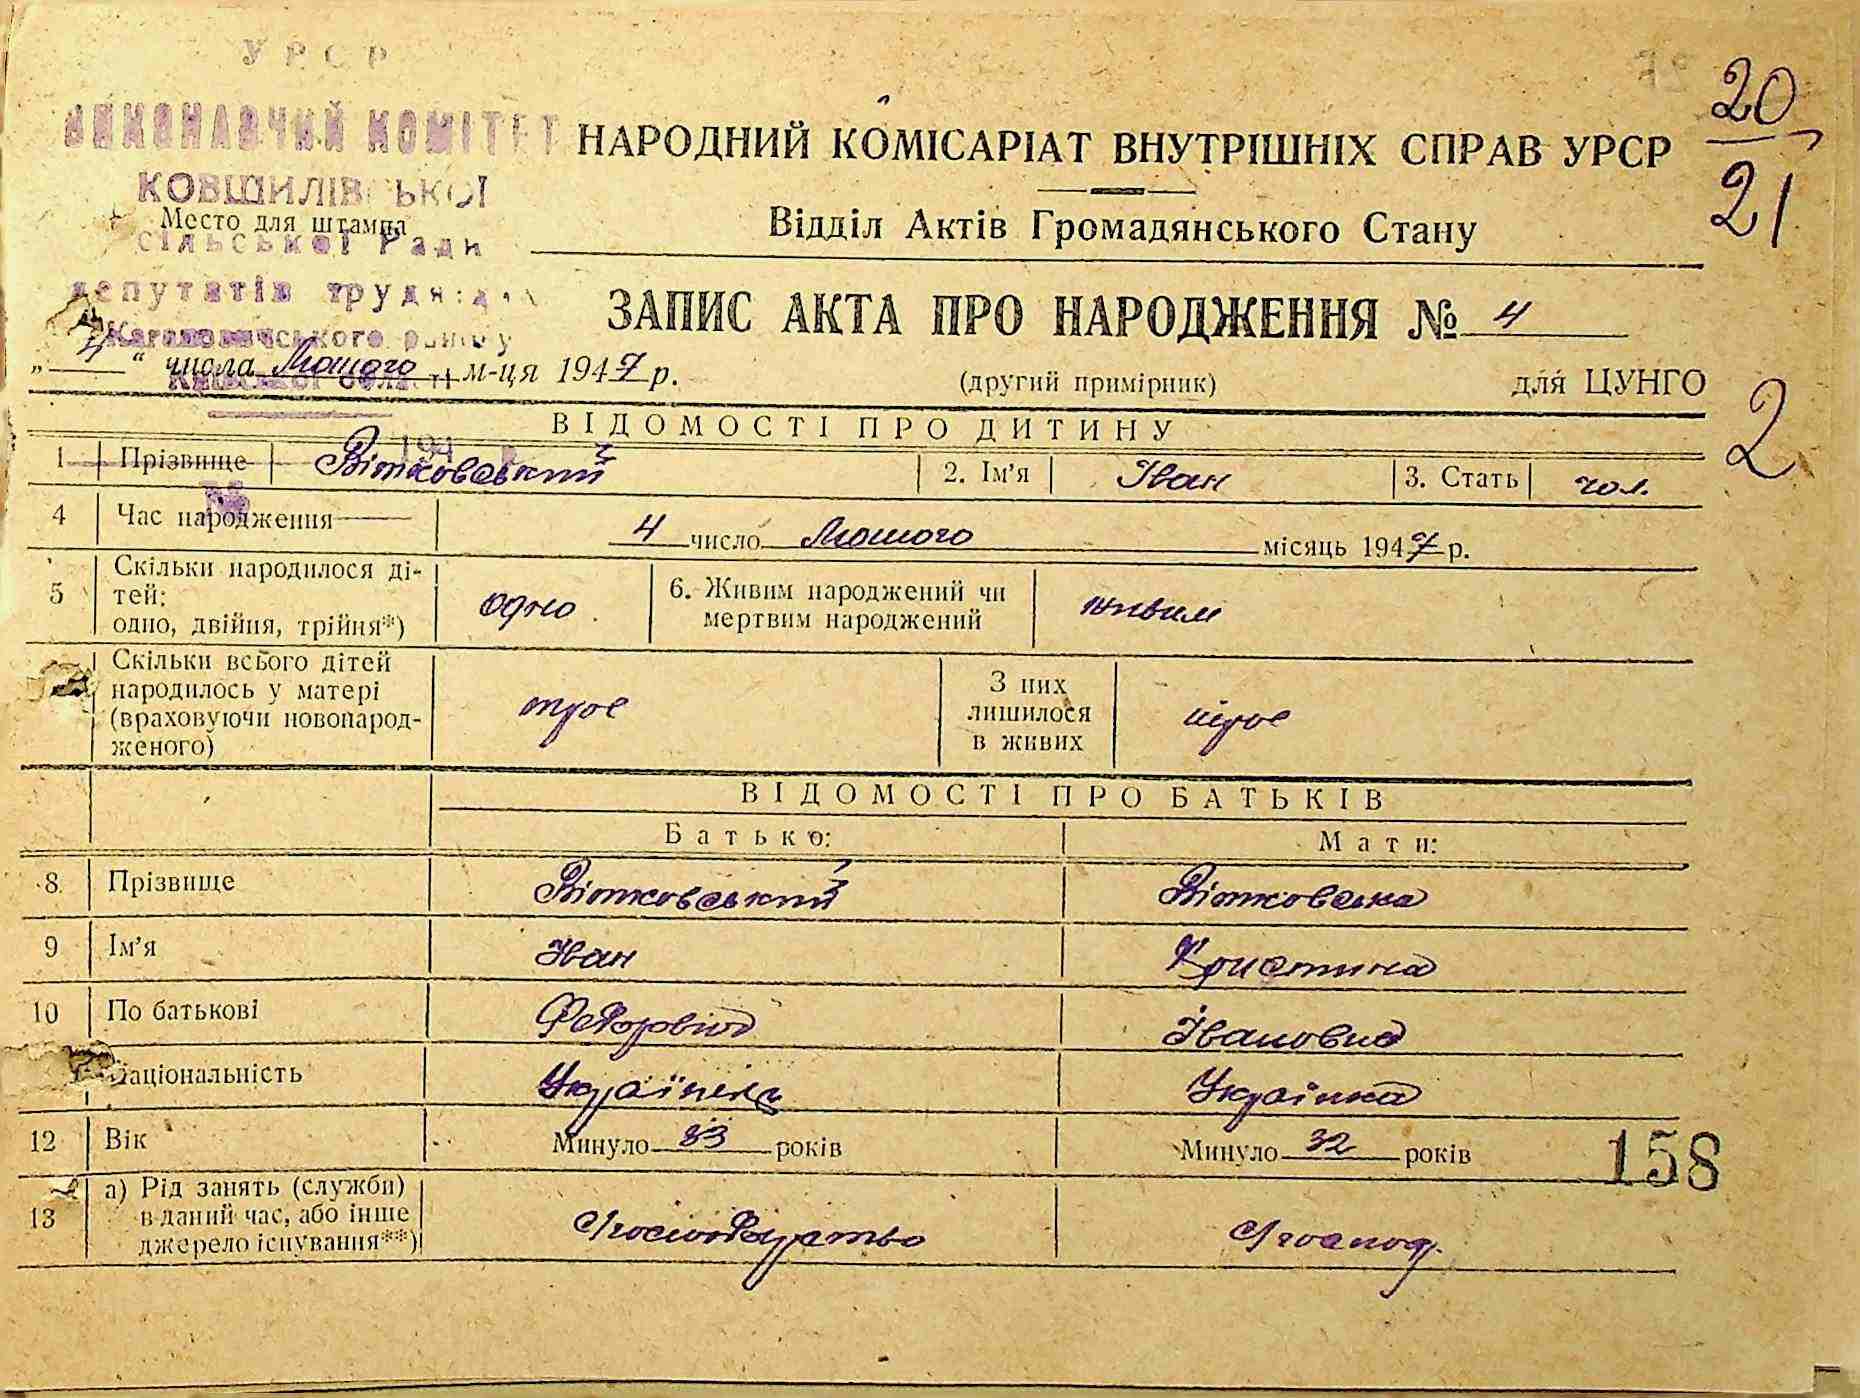 УРСР
ВИКОНАВЧИЙ КОМІТЕТ
КОВШИЛІВСЬКОЇ
Место для штампа
сільської Ради
депутатів трудящих
Кагановичського району
Київської області
194
№
НАРОДНИЙ КОМІСАРІАТ ВНУТРІШНІХ СПРАВ УРСР
20
21
Відділ Актів Громадянського Стану
ЗАПИС АКТА ПРО НАРОДЖЕННЯ № 4
„ 4 “ числа Лютого м-ця 1947 р.
(другий примірник)
для ЦУНГО
2
ВІДОМОСТІ ПРО ДИТИНУ
1 Прізвище Вітковський 2. Ім'я Іван 3. Стать чол.
4 Час народження 4 число Лютого місяць 1947 р.
5 Скільки народилося ді-
тей:
одно, двійня, трійня*) одно
6. Живим народжений чи
мертвим народжений живим
Скільки всього дітей
народилось у матері
(враховуючи новонарод-
женого) троє
З них
лишилося
в живих троє
ВІДОМОСТІ ПРО БАТЬКІВ
Батько: Мати:
8 Прізвище Вітковський Вітковська
9 Ім'я Іван Кристина
10 По батькові Федорович Івановна
Національність Українець Українка
12 Вік Минуло 33 років Минуло 32 років
158
13 а) Рід занять (служби)
в даний час, або інше
джерело існування**) Господарство Господ.